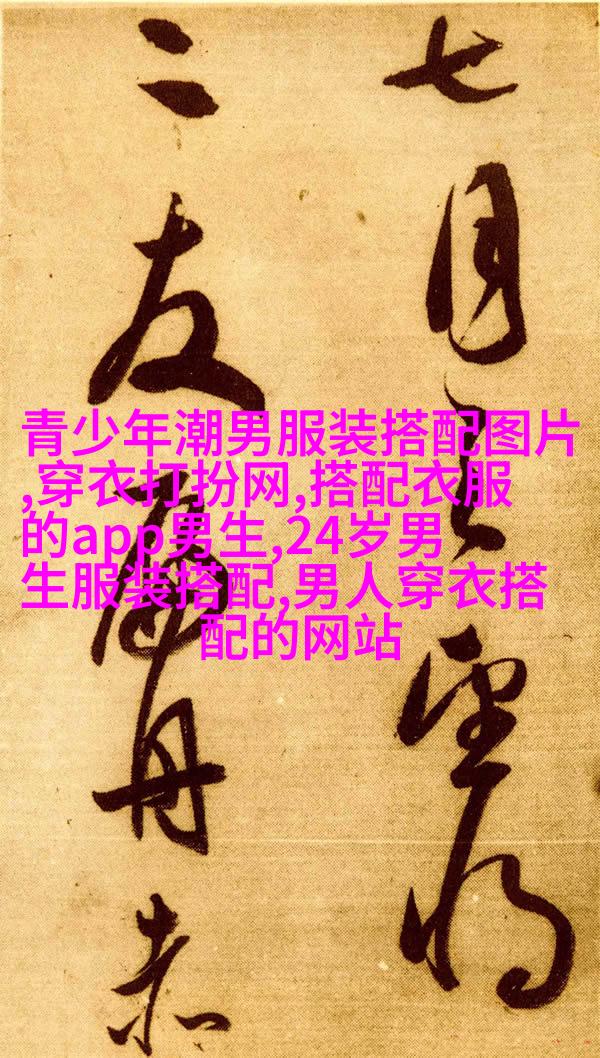 七月之望将
二友扁舟赤
青少年潮男服装搭配图片
,穿衣打扮网,搭配衣服
的app男生,24岁男
生服装搭配,男人穿衣搭
配的网站